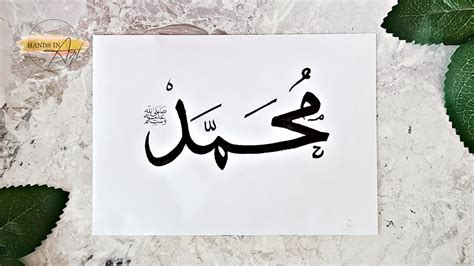 HANDS IN
Art
مُحَمَّدْ
صلى الله
عليه
وسلم